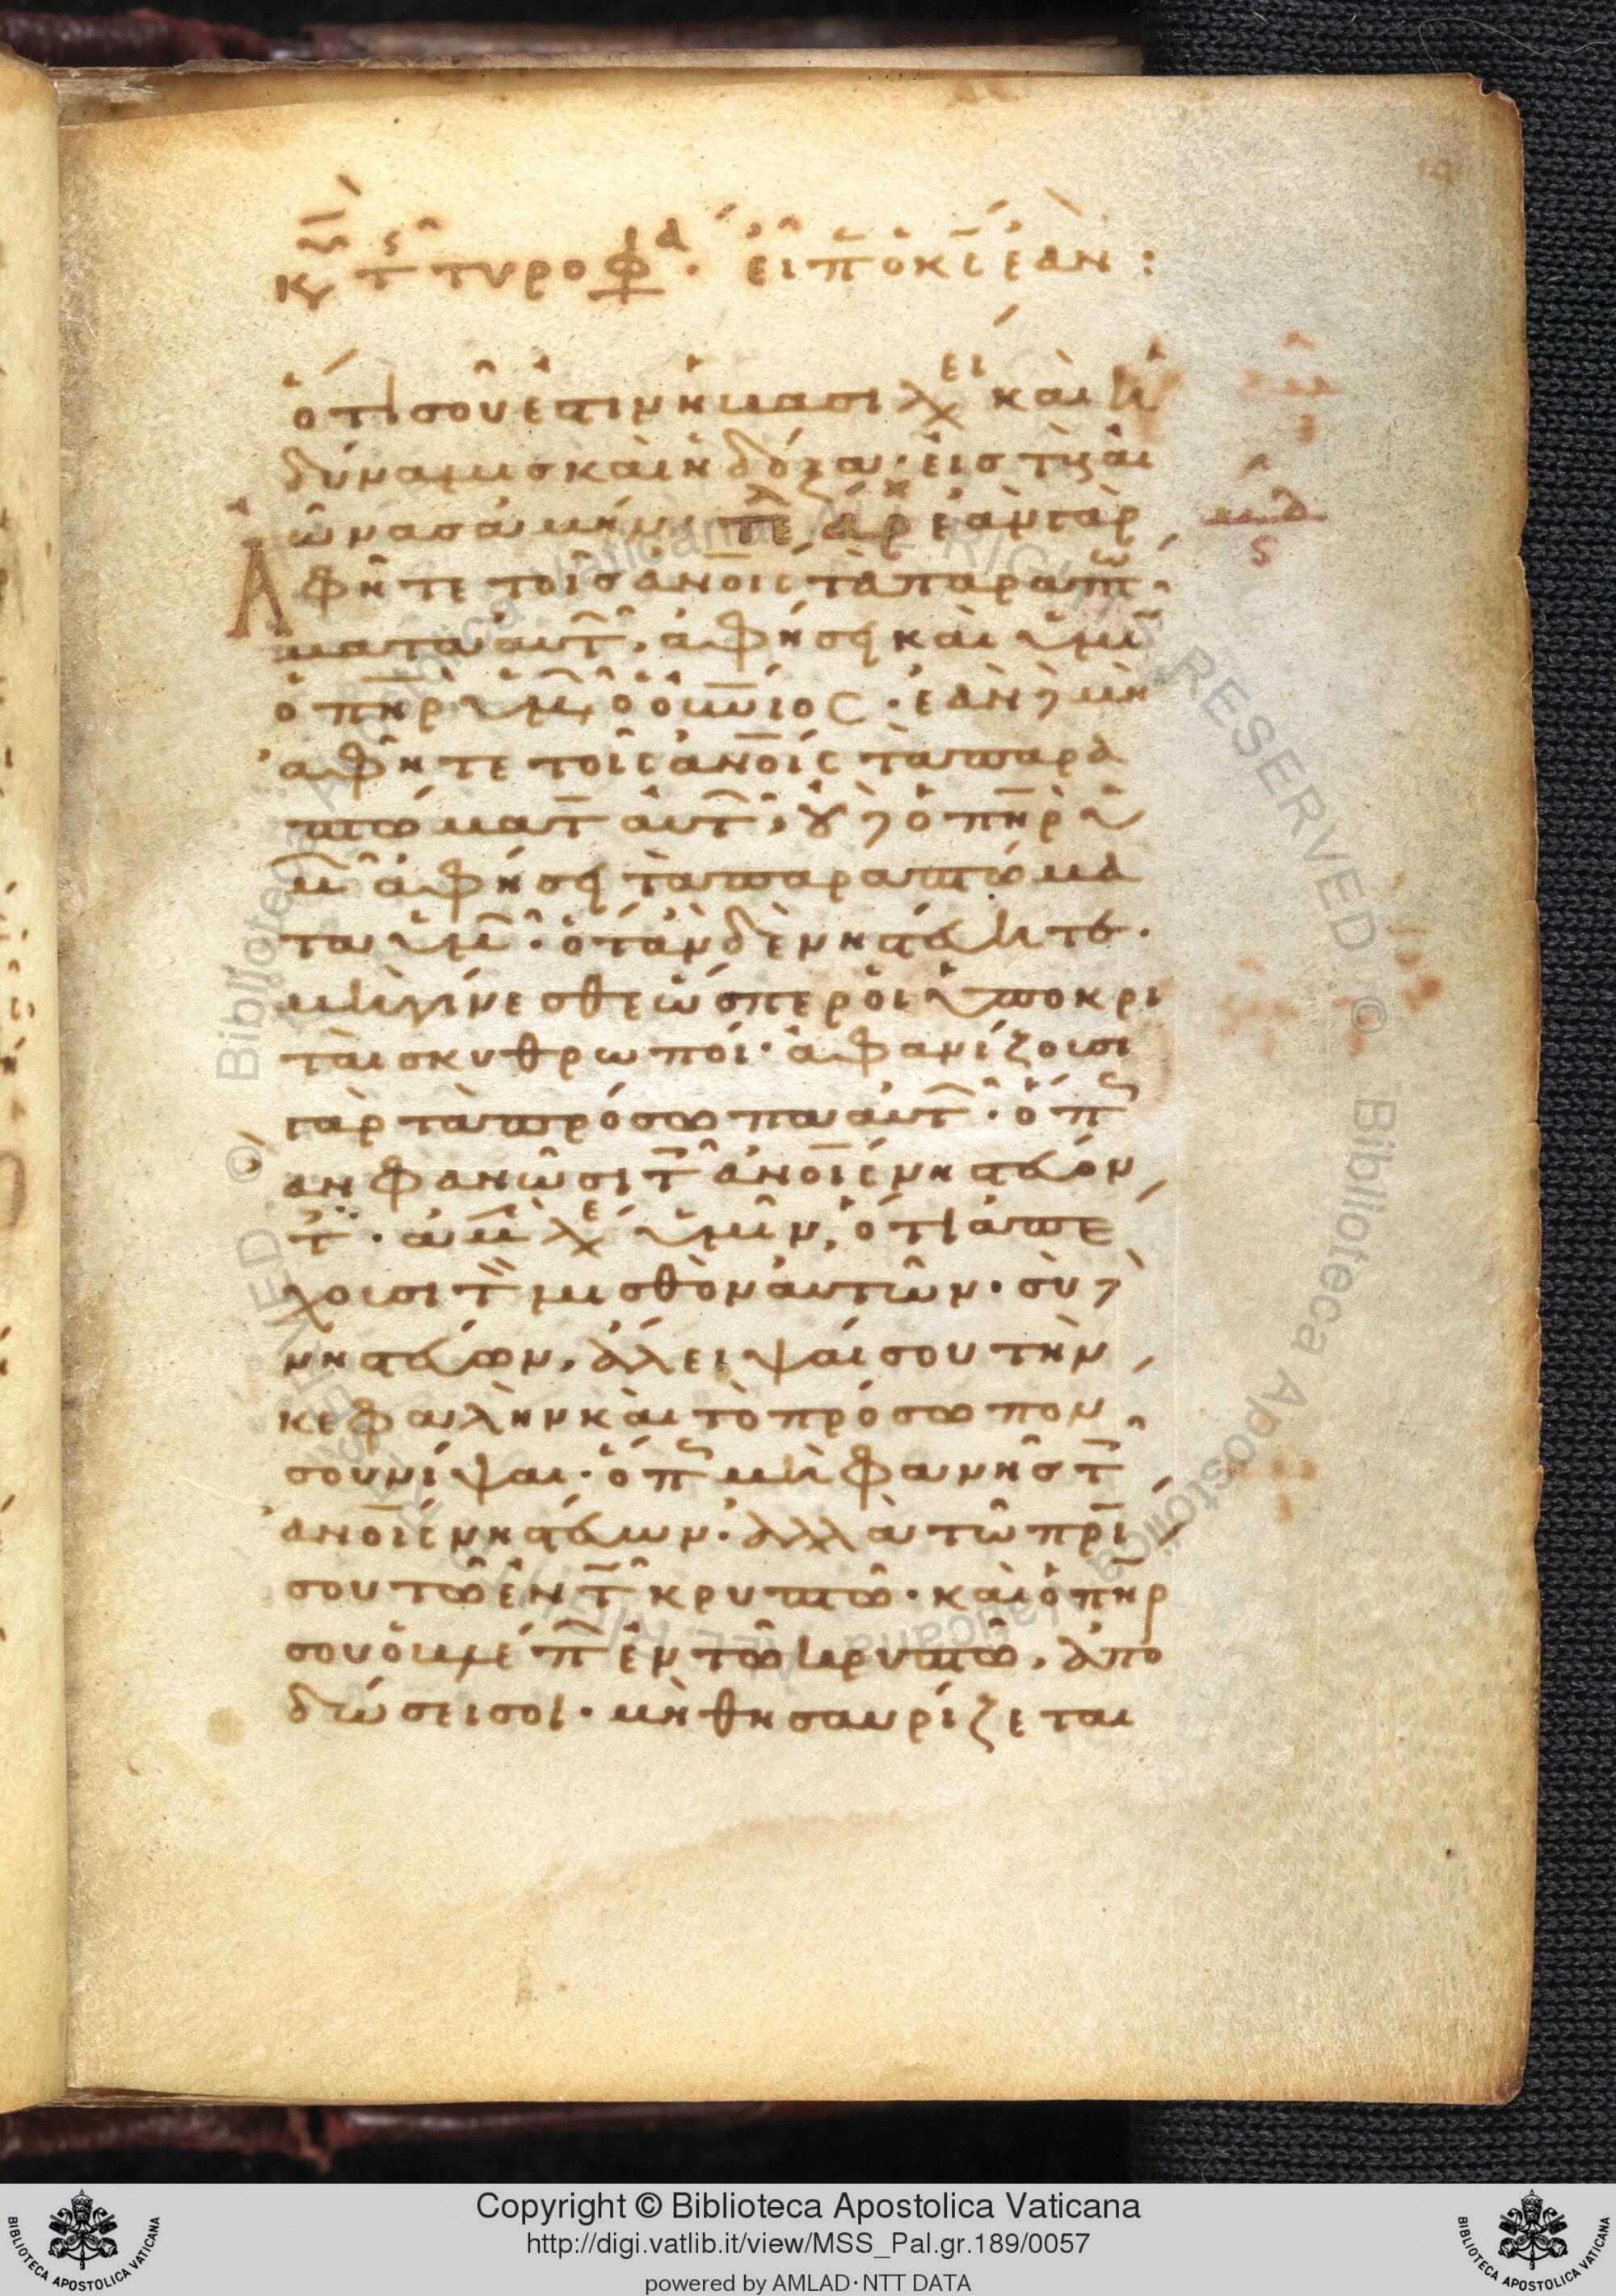 κυ τ τυροφα · εἰπ ὁ κς ἐάν :
ὅτι σοῦ ἐστιν ἡ βασιλεί καὶ ἡ
δύναμις καὶ ἡ δόξα · εἰς τοὺς αἰ
ῶνας ἀμήν · τελ αρχ ἐὰν γὰρ
ἀφῆτε τοῖς ἀνοις τὰ παραπτώ
ματα αὐτ, ἀφήσει καὶ ὑμῖ
ὁ πηρ ὑμ ὁ οὐνιος · ἐὰν δὲ μὴ
ἀφῆτε τοῖς ἀνοις τὰ παρα
πτώματ αὐτ, οὐδὲ ὁ πηρ ὑ
μ ἀφήσει τὰ παραπτώμα
τα ὑμ · ὅταν δὲ νηστεύητε ·
μὴ γίνεσθε ὥσπερ οἱ ὑποκρι
ταὶ σκυθρωποί · ἀφανίζουσι
γὰρ τὰ πρόσωπα αὐτ · ὅπ
αν φανῶσι τ ἀνοις νηστεύον
τ · ἀμ λέγ ὑμῖν, ὅτι ἀπέ
χουσι τ μισθὸν αὐτῶν · σὺ δὲ
νηστεύων, ἄλειψαί σου τὴν
κεφαλὴν καὶ τὸ πρόσωπον
σου νίψαι · ὅπ μὴ φανῆς τ
ἀνοις νηστεύων · ἀλλὰ τῶ πρι
σου τῶ ἐν τ κρυπτῶ · καὶ ὁ πηρ
σου ὁ βλέπ ἐν τῶ κρυπτῶ, ἀπο
δώσει σοι · μὴ θησαυρίζεται
Copyright © Biblioteca Apostolica Vaticana
http://digi.vatlib.it/view/MSS_Pal.gr.189/0057
powered by AMLAD·NTT DATA
BIBLIOTECA APOSTOLICA VATICANA
BIBLIOTECA APOSTOLICA VATICANA